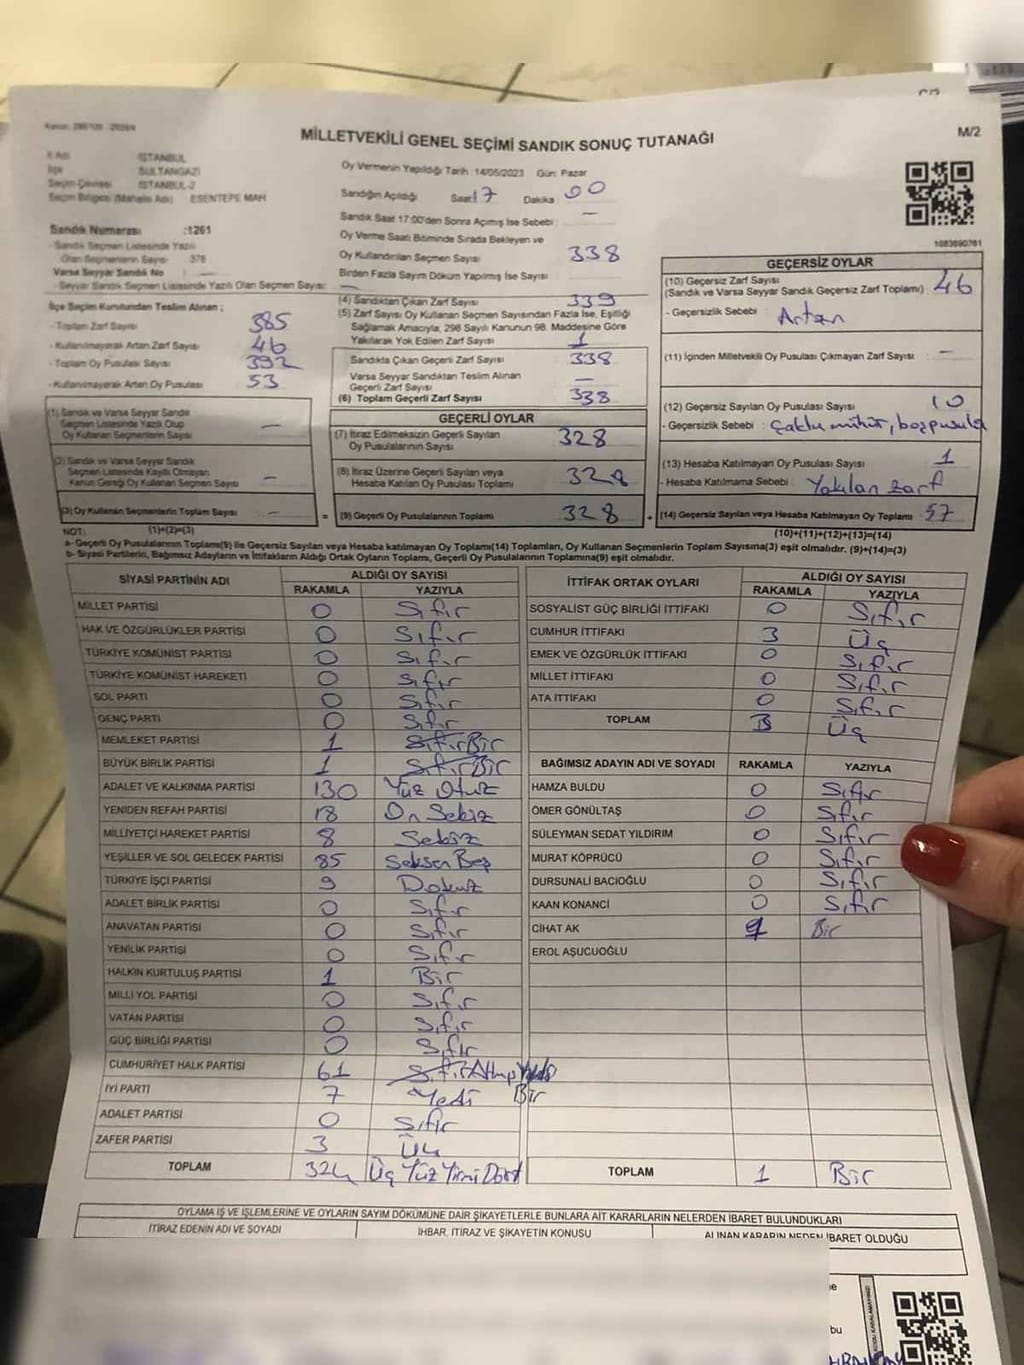 MİLLETVEKİLİ GENEL SEÇİMİ SANDIK SONUÇ TUTANAĞI
M/2
İSTANBUL
SULTANGAZİ
Seçim Çevresi İSTANBUL-2
Seçim Bölgesi (Mahalle Adı) ESENTEPE MAH
Sandık Numarası :1261
- Sandık Seçmen Listesinde Yazılı
Olan Seçmenlerin Sayısı 378
Varsa Seyyar Sandık No
- Seyyar Sandık Seçmen Listesinde Yazılı Olan Seçmen Sayısı:
İlçe Seçim Kurulundan Teslim Alınan ;
- Toplam Zarf Sayısı 385
- Kullanılmayarak Artan Zarf Sayısı 46
- Toplam Oy Pusulası Sayısı 392
- Kullanılmayarak Artan Oy Pusulası 53
(1) Sandık ve Varsa Seyyar Sandık
Seçmen Listesinde Yazılı Olup
Oy Kullanan Seçmenlerin Sayısı —
(2) Sandık ve Varsa Seyyar Sandık
Seçmen Listesinde Kayıtlı Olmayan
Kanun Gereği Oy Kullanan Seçmen Sayısı —
(3) Oy Kullanan Seçmenlerin Toplam Sayısı —
(1)+(2)=(3)
Oy Vermenin Yapıldığı Tarih: 14/05/2023 Gün: Pazar
Sandığın Açıldığı Saat 17 Dakika 00
Sandık Saat 17:00'den Sonra Açımış İse Sebebi : —
Oy Verme Saati Bitiminde Sırada Bekleyen ve
Oy Kullandırılan Seçmen Sayısı 338
Birden Fazla Sayım Döküm Yapılmış İse Sayısı
(4) Sandıktan Çıkan Zarf Sayısı 339
(5) Zarf Sayısı Oy Kullanan Seçmen Sayısından Fazla İse, Eşitliği
Sağlamak Amacıyla, 298 Sayılı Kanunun 98. Maddesine Göre
Yakılarak Yok Edilen Zarf Sayısı 1
Sandıkta Çıkan Geçerli Zarf Sayısı 338
Varsa Seyyar Sandıktan Teslim Alınan
Geçerli Zarf Sayısı —
(6) Toplam Geçerli Zarf Sayısı 338
GEÇERLİ OYLAR
(7) İtiraz Edilmeksizin Geçerli Sayılan
Oy Pusulalarının Sayısı 328
(8) İtiraz Üzerine Geçerli Sayılan veya
Hesaba Katılan Oy Pusulası Toplamı 328
= (9) Geçerli Oy Pusulalarının Toplamı 328
1083690761
GEÇERSİZ OYLAR
(10) Geçersiz Zarf Sayısı
(Sandık ve Varsa Seyyar Sandık Geçersiz Zarf Toplamı) : 46
- Geçersizlik Sebebi : Artan
(11) İçinden Milletvekili Oy Pusulası Çıkmayan Zarf Sayısı : —
(12) Geçersiz Sayılan Oy Pusulası Sayısı 10
- Geçersizlik Sebebi : Çoklu mühür, boş pusula
(13) Hesaba Katılmayan Oy Pusulası Sayısı 1
- Hesaba Katılmama Sebebi : Yakılan zarf
+ (14) Geçersiz Sayılan veya Hesaba Katılmayan Oy Toplamı 57
(10)+(11)+(12)+(13)=(14)
NOT:
a- Geçerli Oy Pusulalarının Toplamı(9) ile Geçersiz Sayılan veya Hesaba katılmayan Oy Toplamı(14) Toplamları, Oy Kullanan Seçmenlerin Toplam Sayısına(3) eşit olmalıdır. (9)+(14)=(3)
b- Siyasi Partilerin, Bağımsız Adayların ve İttifakların Aldığı Ortak Oyların Toplamı, Geçerli Oy Pusulalarının Toplamına(9) eşit olmalıdır.
SİYASİ PARTİNİN ADI ALDIĞI OY SAYISI
RAKAMLA YAZIYLA
MİLLET PARTİSİ 0 Sıfır
HAK VE ÖZGÜRLÜKLER PARTİSİ 0 Sıfır
TÜRKİYE KOMÜNİST PARTİSİ 0 Sıfır
TÜRKİYE KOMÜNİST HAREKETİ 0 Sıfır
SOL PARTİ 0 Sıfır
GENÇ PARTİ 0 Sıfır
MEMLEKET PARTİSİ 1 Sıfır Bir
BÜYÜK BİRLİK PARTİSİ 1 Sıfır Bir
ADALET VE KALKINMA PARTİSİ 130 Yüz Otuz
YENİDEN REFAH PARTİSİ 18 On Sekiz
MİLLİYETÇİ HAREKET PARTİSİ 8 Sekiz
YEŞİLLER VE SOL GELECEK PARTİSİ 85 Seksen Beş
TÜRKİYE İŞÇİ PARTİSİ 9 Dokuz
ADALET BİRLİK PARTİSİ 0 Sıfır
ANAVATAN PARTİSİ 0 Sıfır
YENİLİK PARTİSİ 0 Sıfır
HALKIN KURTULUŞ PARTİSİ 1 Bir
MİLLİ YOL PARTİSİ 0 Sıfır
VATAN PARTİSİ 0 Sıfır
GÜÇ BİRLİĞİ PARTİSİ 0 Sıfır
CUMHURİYET HALK PARTİSİ 61 Sıfır Altmış Bir
İYİ PARTİ 7 Yedi
ADALET PARTİSİ 0 Sıfır
ZAFER PARTİSİ 3 Üç
TOPLAM 324 Üç Yüz Yirmi Dört
İTTİFAK ORTAK OYLARI ALDIĞI OY SAYISI
RAKAMLA YAZIYLA
SOSYALİST GÜÇ BİRLİĞİ İTTİFAKI 0 Sıfır
CUMHUR İTTİFAKI 3 Üç
EMEK VE ÖZGÜRLÜK İTTİFAKI 0 Sıfır
MİLLET İTTİFAKI 0 Sıfır
ATA İTTİFAKI 0 Sıfır
TOPLAM 3 Üç
BAĞIMSIZ ADAYIN ADI VE SOYADI RAKAMLA YAZIYLA
HAMZA BULDU 0 Sıfır
ÖMER GÖNÜLTAŞ 0 Sıfır
SÜLEYMAN SEDAT YILDIRIM 0 Sıfır
MURAT KÖPRÜCÜ 0 Sıfır
DURSUNALİ BACIOĞLU 0 Sıfır
KAAN KONANCİ 0 Sıfır
CİHAT AK 1 Bir
EROL AŞUCUOĞLU
TOPLAM 1 Bir
OYLAMA İŞ VE İŞLEMLERİNE VE OYLARIN SAYIM DÖKÜMÜNE DAİR ŞİKAYETLERLE BUNLARA AİT KARARLARIN NELERDEN İBARET BULUNDUKLARI
İTİRAZ EDENİN ADI VE SOYADI İHBAR, İTİRAZ VE ŞİKAYETİN KONUSU ALINAN KARARIN NEDEN İBARET OLDUĞU